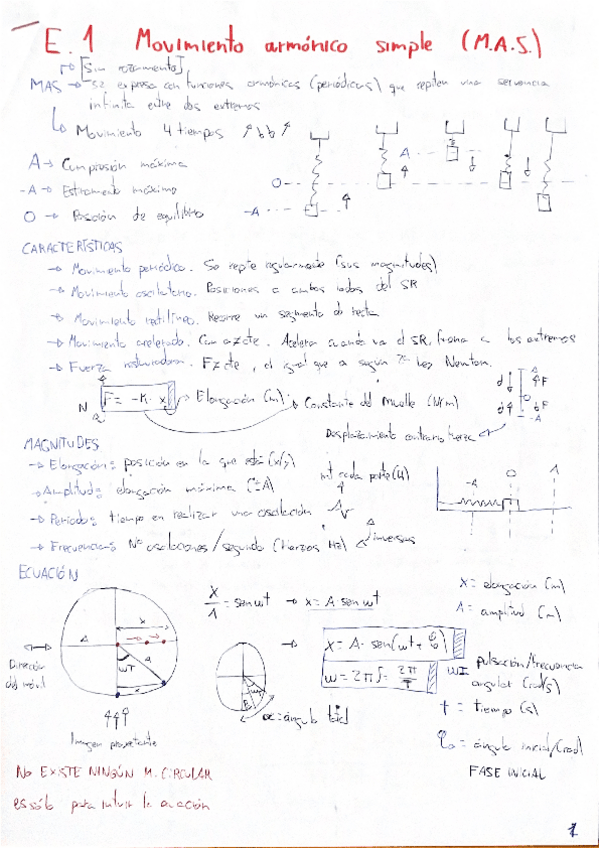 E.1 Movimiento armónico simple (M.A.S.)
[Sin rozamiento]
MAS → se expresa con funciones armónicas (periódicas) que repiten una secuencia
infinita entre dos extremos
Movimiento 4 tiempos
A → Compresión máxima
-A → Estiramiento máximo
O → Posición de equilibrio
A
O
-A
CARACTERÍSTICAS
→ Movimiento periódico. Se repite regularmente (sus magnitudes)
→ Movimiento oscilatorio. Posiciones a ambos lados del SR
→ Movimiento rectilíneo. Recorre un segmento de recta
→ Movimiento acelerado. Con a≠cte. Acelera cuando va al SR, frena a los extremos
→ Fuerza restauradora. F≠cte, al igual que a según 2ª Ley Newton.
N F = -K · x → Elongación (m) → Constante del muelle (N/m)
Desplazamiento contrario fuerza
MAGNITUDES
→ Elongación: posición en la que está (x/y)
→ Amplitud: elongación máxima (±A)
→ Período: tiempo en realizar una oscilación
→ Frecuencia: Nº oscilaciones/segundo (hercios, Hz) inversas
-A O A
ECUACIÓN
x/A = sen ωt → x = A sen ωt
x = A · sen(ωt + φ₀)
ω = 2πf = 2π/T
x = elongación (m)
A = amplitud (m)
ω = pulsación/frecuencia
angular (rad/s)
t = tiempo (s)
φ₀ = ángulo inicial (rad)
FASE INICIAL
Dirección
del móvil
α = ángulo total
Imagen proyectante
NO EXISTE NINGÚN M. CIRCULAR
es sólo para intuir la ecuación
1